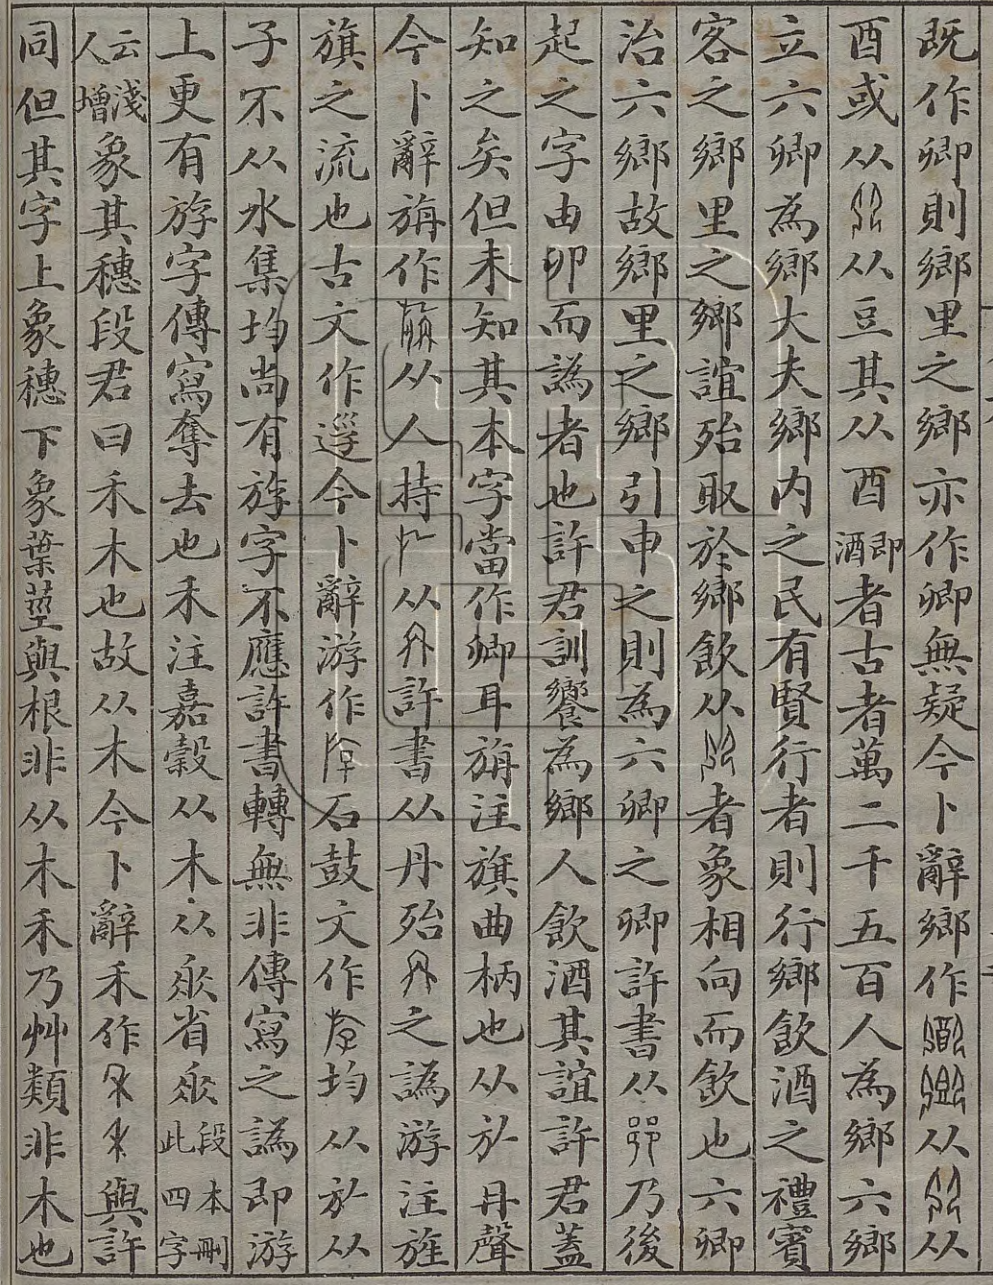 既作卿則鄉里之鄉亦作卿無疑今卜辭鄉作从从
酉或从从豆其从酉即酒者古者萬二千五百人為鄉六鄉
立六卿為鄉大夫鄉內之民有賢行者則行鄉飲酒之禮賓
客之鄉里之鄉誼殆取於鄉飲从者象相向而飲也六卿
治六鄉故鄉里之鄉引申之則為六卿之卿許書从乃後
起之字由卯而譌者也許君訓饗為鄉人飲酒其誼許君蓋
知之矣但未知其本字當作卿耳旃注旗曲柄也从㫃丹聲
今卜辭旃作从人持从許書从丹殆之譌游注旌
旗之流也古文作今卜辭游作石鼓文作均从㫃从
子不从水集均尚有斿字不應許書轉無非傳寫之譌即游
上更有斿字傳寫奪去也禾注嘉穀从木从𠂹省𠂹段本刪此四字
云淺人增象其穗段君曰禾木也故从木今卜辭禾作與許
同但其字上象穗下象葉莖與根非从木禾乃艸類非木也